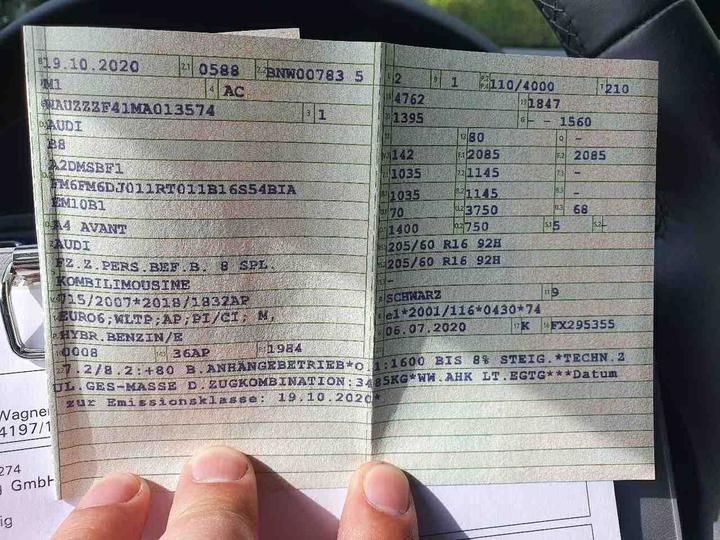 19.10.2020 2.1 0588 2.2 BNW00783 5
M1 4 AC
WAUZZZF41MA013574 3 1
AUDI
B8
A2DMSBF1
FM6FM6DJ011RT011B16S54BIA
EM10B1
A4 AVANT
AUDI
FZ.Z.PERS.BEF.B. 8 SPL.
KOMBILIMOUSINE
715/2007*2018/1832AP
EURO6;WLTP;AP;PI/CI; M,
HYBR.BENZIN/E
0008 36AP 1984
7.2/8.2:+80 B.ANHÄNGEBETRIEB*O.1:1600 BIS 8% STEIG.*TECHN.Z
UL.GES-MASSE D.ZUGKOMBINATION:3485KG*WW.AHK LT.EGTG***Datum
zur Emissionsklasse: 19.10.2020*
2 9 1 110/4000 T 210
4762 1847
1395 G - - 1560
80 Q -
142 2085 2085
1035 1145 -
1035 1145 -
70 3750 68
1400 750 5 -
205/60 R16 92H
205/60 R16 92H
-
SCHWARZ 11 9
e1*2001/116*0430*74
06.07.2020 17 K 16 FX295355
Wagner
4197/1
274
g GmbH
ig